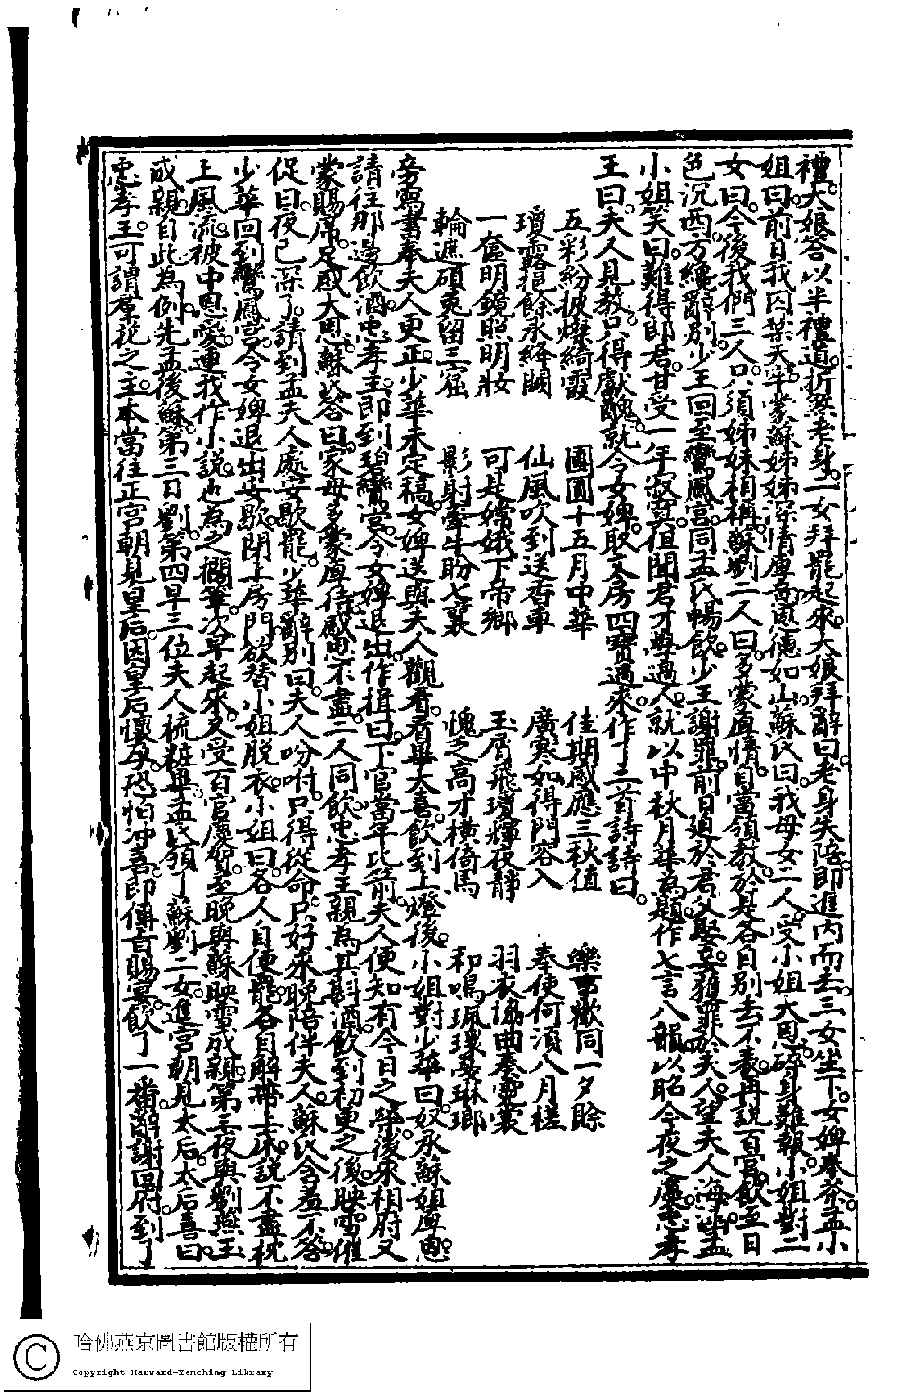 禮。大娘答以半禮道。折煞老身。二女拜罷起來。大娘拜辭曰。老身失陪。即進內而去。三女坐下。女婢奉茶。孟小
姐曰。前日我囚某天牢。蒙蘇姊姊深情厚高恩德如山。蘇氏曰。我母女二人。受小姐大恩。碎身難報。小姐對二
女曰。今後我們三人。只須姊妹相稱。蘇劉二人曰。多蒙直情。自當領教。於是各自別去不表。再說百官飲至日
色沉西。方纔辭別。少王回至鸞鳳宮。同孟氏暢飲。少王謝罪。前日迫於君父。娶妾獲罪於夫人。望夫人海涵。孟
小姐笑曰。難得郎君。甘受一年寂寞。但聞君才尊過人。就以中秋月華為題。作七言八韻。以昭今夜之慶。忠孝
王曰。夫人見教。只得獻醜。就令女婢取文房四寶過來。作十二首詩。詩曰。
五彩紛披燦綺霞 團圓十五月中華 佳期感應三秋值 樂事歡同一夕賒
瓊露挹餘承絳闕 仙風吹到送香車 廣寒如得門容入 奉使何須八月槎
一奩明鏡照明妝 可是嫦娥下帝鄉 玉屑飛瓊輝夜靜 羽衣偷曲奏霓裳
輪遮碩兔留三窟 影射牽牛盼七襄 愧之高才橫倚馬 和鳴珮環養琳瑯
旁寫書奉夫人更正。少華未定稿。女婢送與夫人觀看。看畢大喜。飲到上燈後。小姐對少華曰。奴承蘇姐厚恩。
請往那邊飲酒。忠孝王即到碧鸞宮。令女婢退出。作揖曰。下官當年此前。夫人便知有今日之榮。後來相府又
蒙賜席。足感大恩。蘇氏答曰。家母多蒙厚待。感恩不盡。二人同飲。忠孝王親為其斟酒。飲到初更之後。映雪催
促曰。夜已深了。請到孟夫人處安歇罷。少華辭別曰。夫人吩咐。只得從命。只好來晚陪伴夫人。蘇氏含羞不答。
少華回到鸞鳳宮。令女婢退出安歇。閉上房門。欲替小姐脫衣。小姐曰。各人自便罷。各自解帶上床。說不盡枕
上風流。被中恩愛。連我作小說。也為之擱筆。次早起來。又受百官慶賀。至晚與蘇映雪成親。第三夜與劉燕玉
成親。自此為例。先孟後蘇。第三日劉。第四早三位夫人梳粧畢。孟氏領了蘇劉二女。進宮朝見太后。太后喜曰。
忠孝王。可謂羣花之主。本當往正宮朝見皇后。因皇后懷孕。恐怕沖喜。即傳旨賜宴。飲了一番。辭謝回府。到了
哈佛燕京圖書館版權所有
Copyright Harvard-Yenching Library